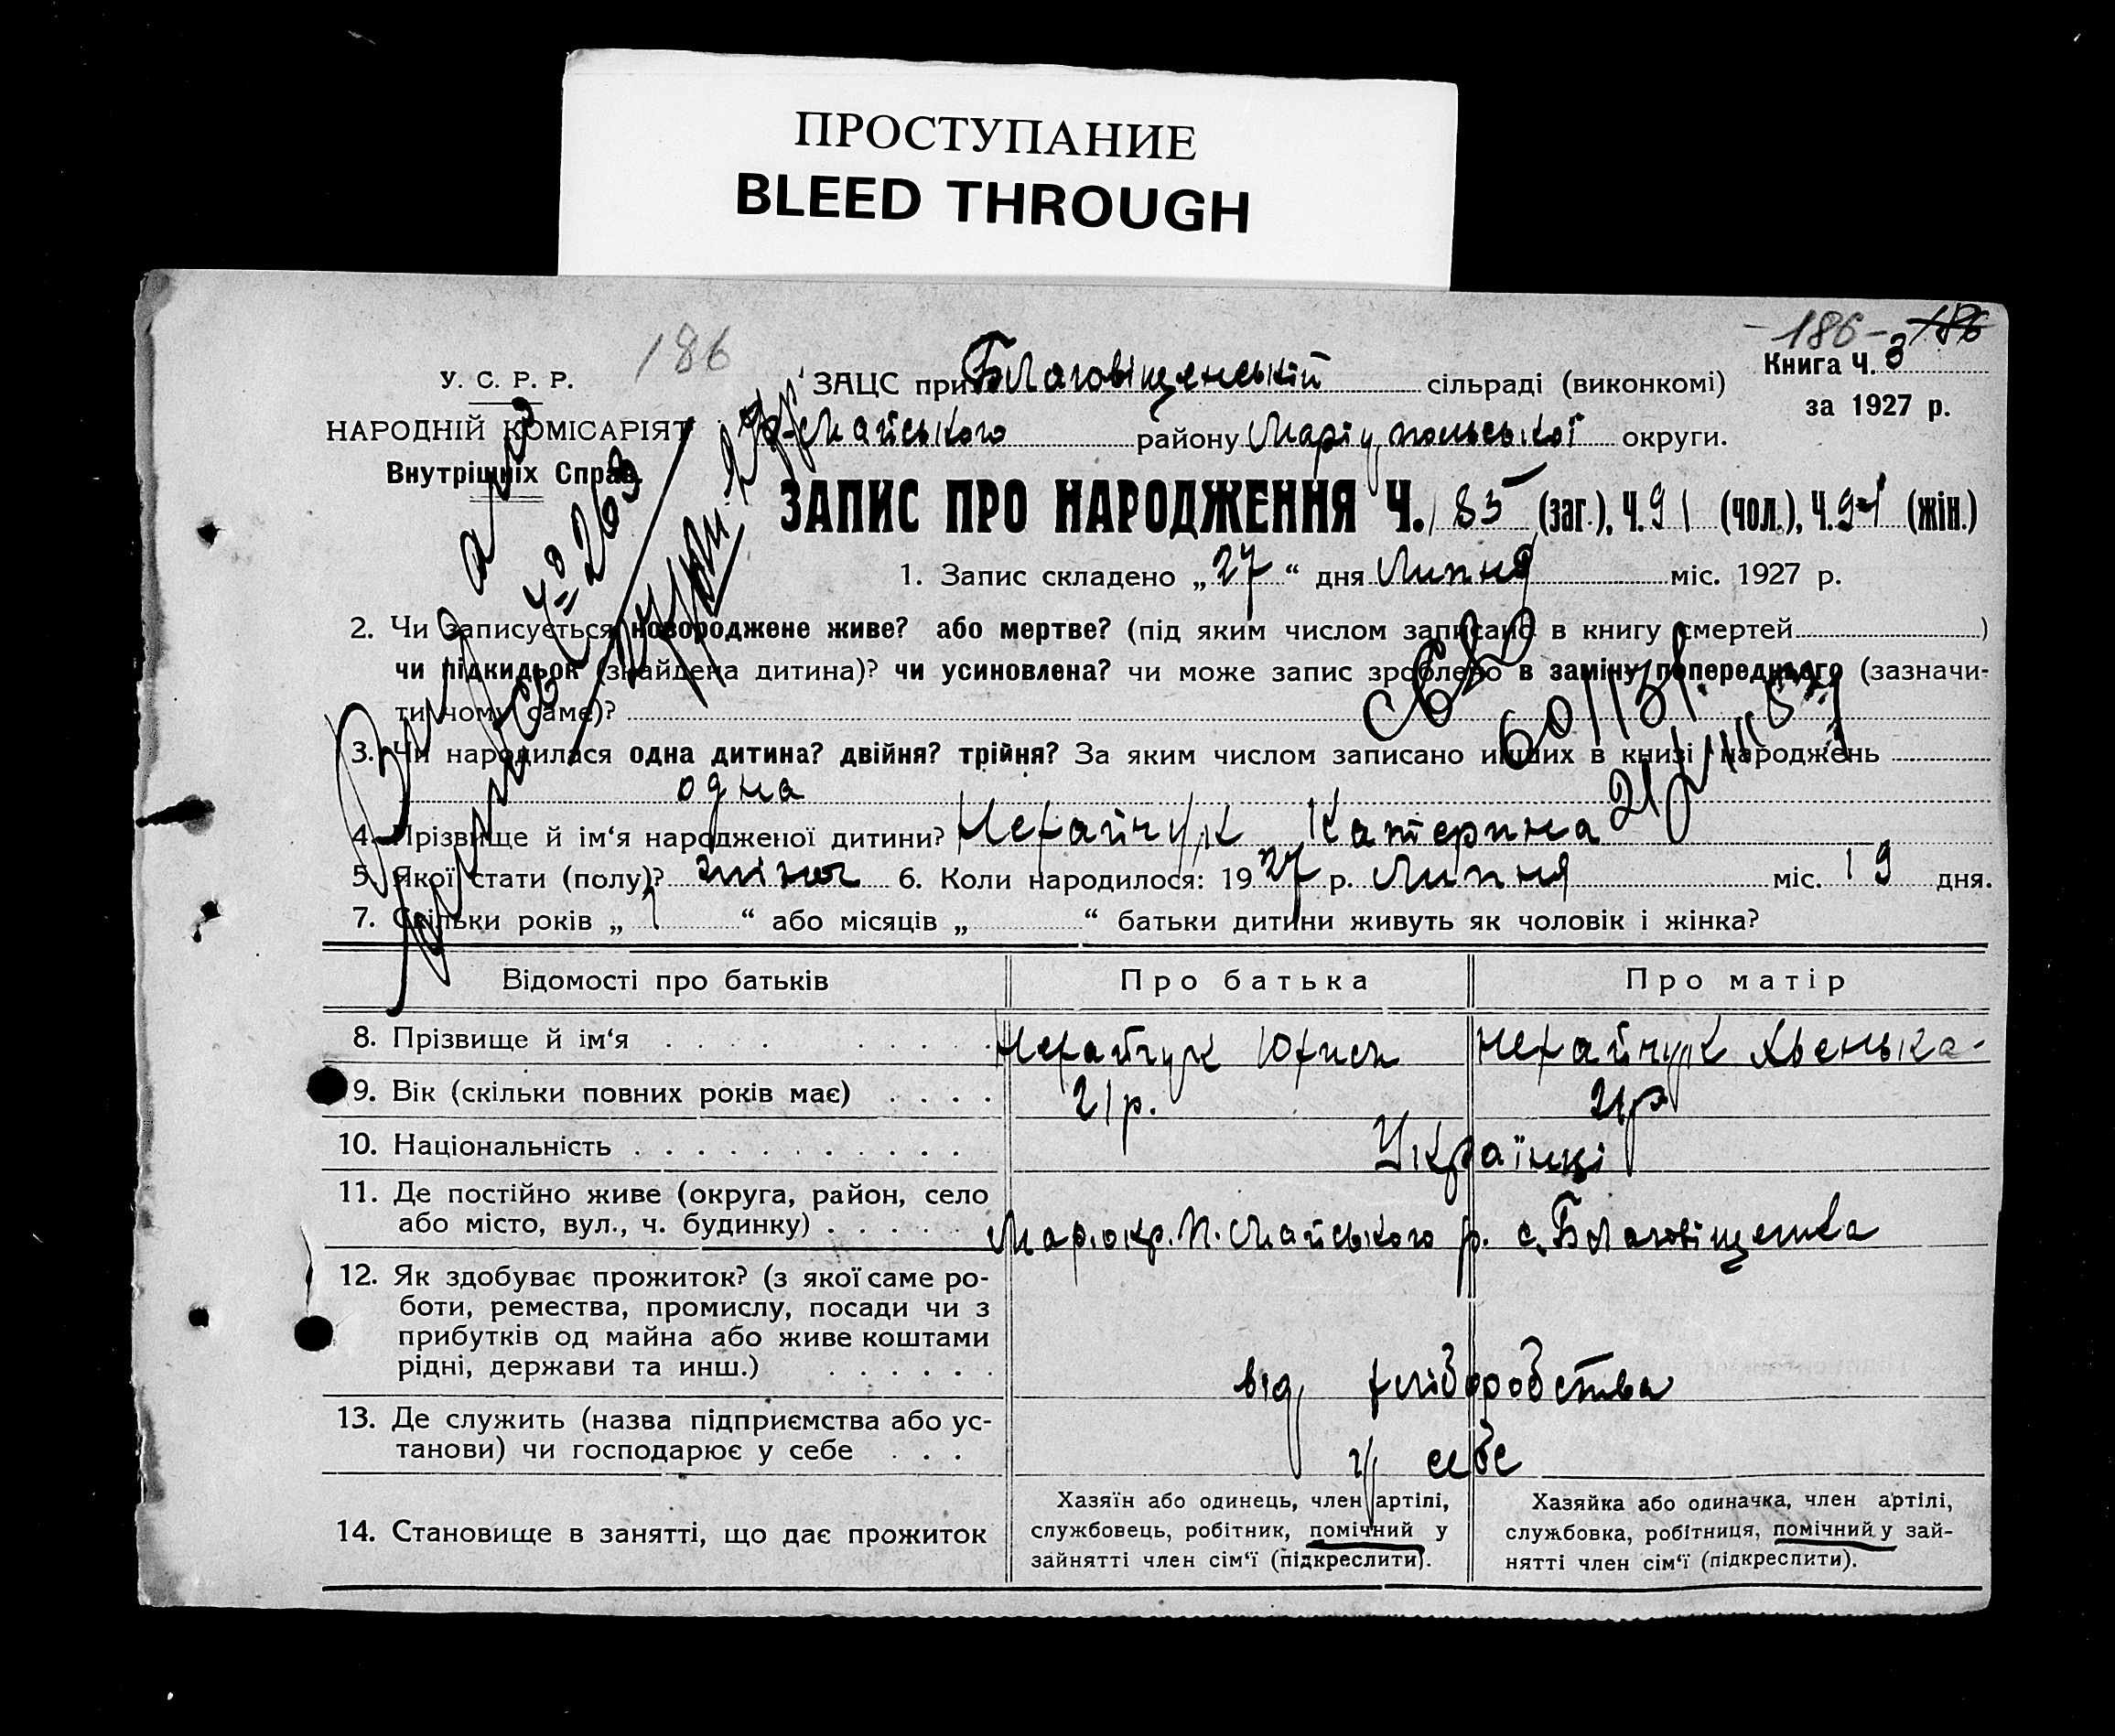 ПРОСТУПАНИЕ
BLEED THROUGH
186 -186- 186
У. С. Р. Р.
НАРОДНІЙ КОМІСАРІЯТ
Внутрішніх Справ.
Книга Ч. 3
за 1927 р.
ЗАЦС при Благовіщенській сільраді (виконкомі)
Майського району Маріупольської округи.
ЗАПИС ПРО НАРОДЖЕННЯ Ч. 185 (заг.), Ч. 91 (чол.), Ч. 94 (жін.)
1. Запис складено „27“ дня Липня міс. 1927 р.
2. Чи записується новороджене живе? або мертве? (під яким числом записано в книгу смертей)
чи підкидьок (знайдена дитина)? чи усиновлена? чи може запис зроблено в заміну попереднього (зазначи-
ти чому саме)?
3. Чи народилася одна дитина? двійня? трійня? За яким числом записано инших в книзі народжень
одна
4. Прізвище й ім‘я народженої дитини? Нехайчук Катерина
5. Якої стати (полу)? жіноч 6. Коли народилося: 1927 р. Липня міс. 19 дня.
7. Скільки років „1“ або місяців „ “ батьки дитини живуть як чоловік і жінка?
Відомості про батьків Про батька Про матір
8. Прізвище й ім‘я Нехайчук Юхим Нехайчук
9. Вік (скільки повних років має) 21 р. 21 р
10. Національність Українці
11. Де постійно живе (округа, район, село
або місто, вул., ч. будинку) Мар. окр. П. Майського р. с. Благовіщенка
12. Як здобуває прожиток? (з якої саме ро-
боти, ремества, промислу, посади чи з
прибутків од майна або живе коштами
рідні, держави та инш.) від хліборобства
13. Де служить (назва підприємства або ус-
танови) чи господарює у себе у себе
14. Становище в занятті, що дає прожиток
Хазяїн або одинець, член артілі,
службовець, робітник, помічний у
зайнятті член сім‘ї (підкреслити).
Хазяйка або одиначка, член артілі,
службовка, робітниця, помічний у зай-
нятті член сім‘ї (підкреслити).